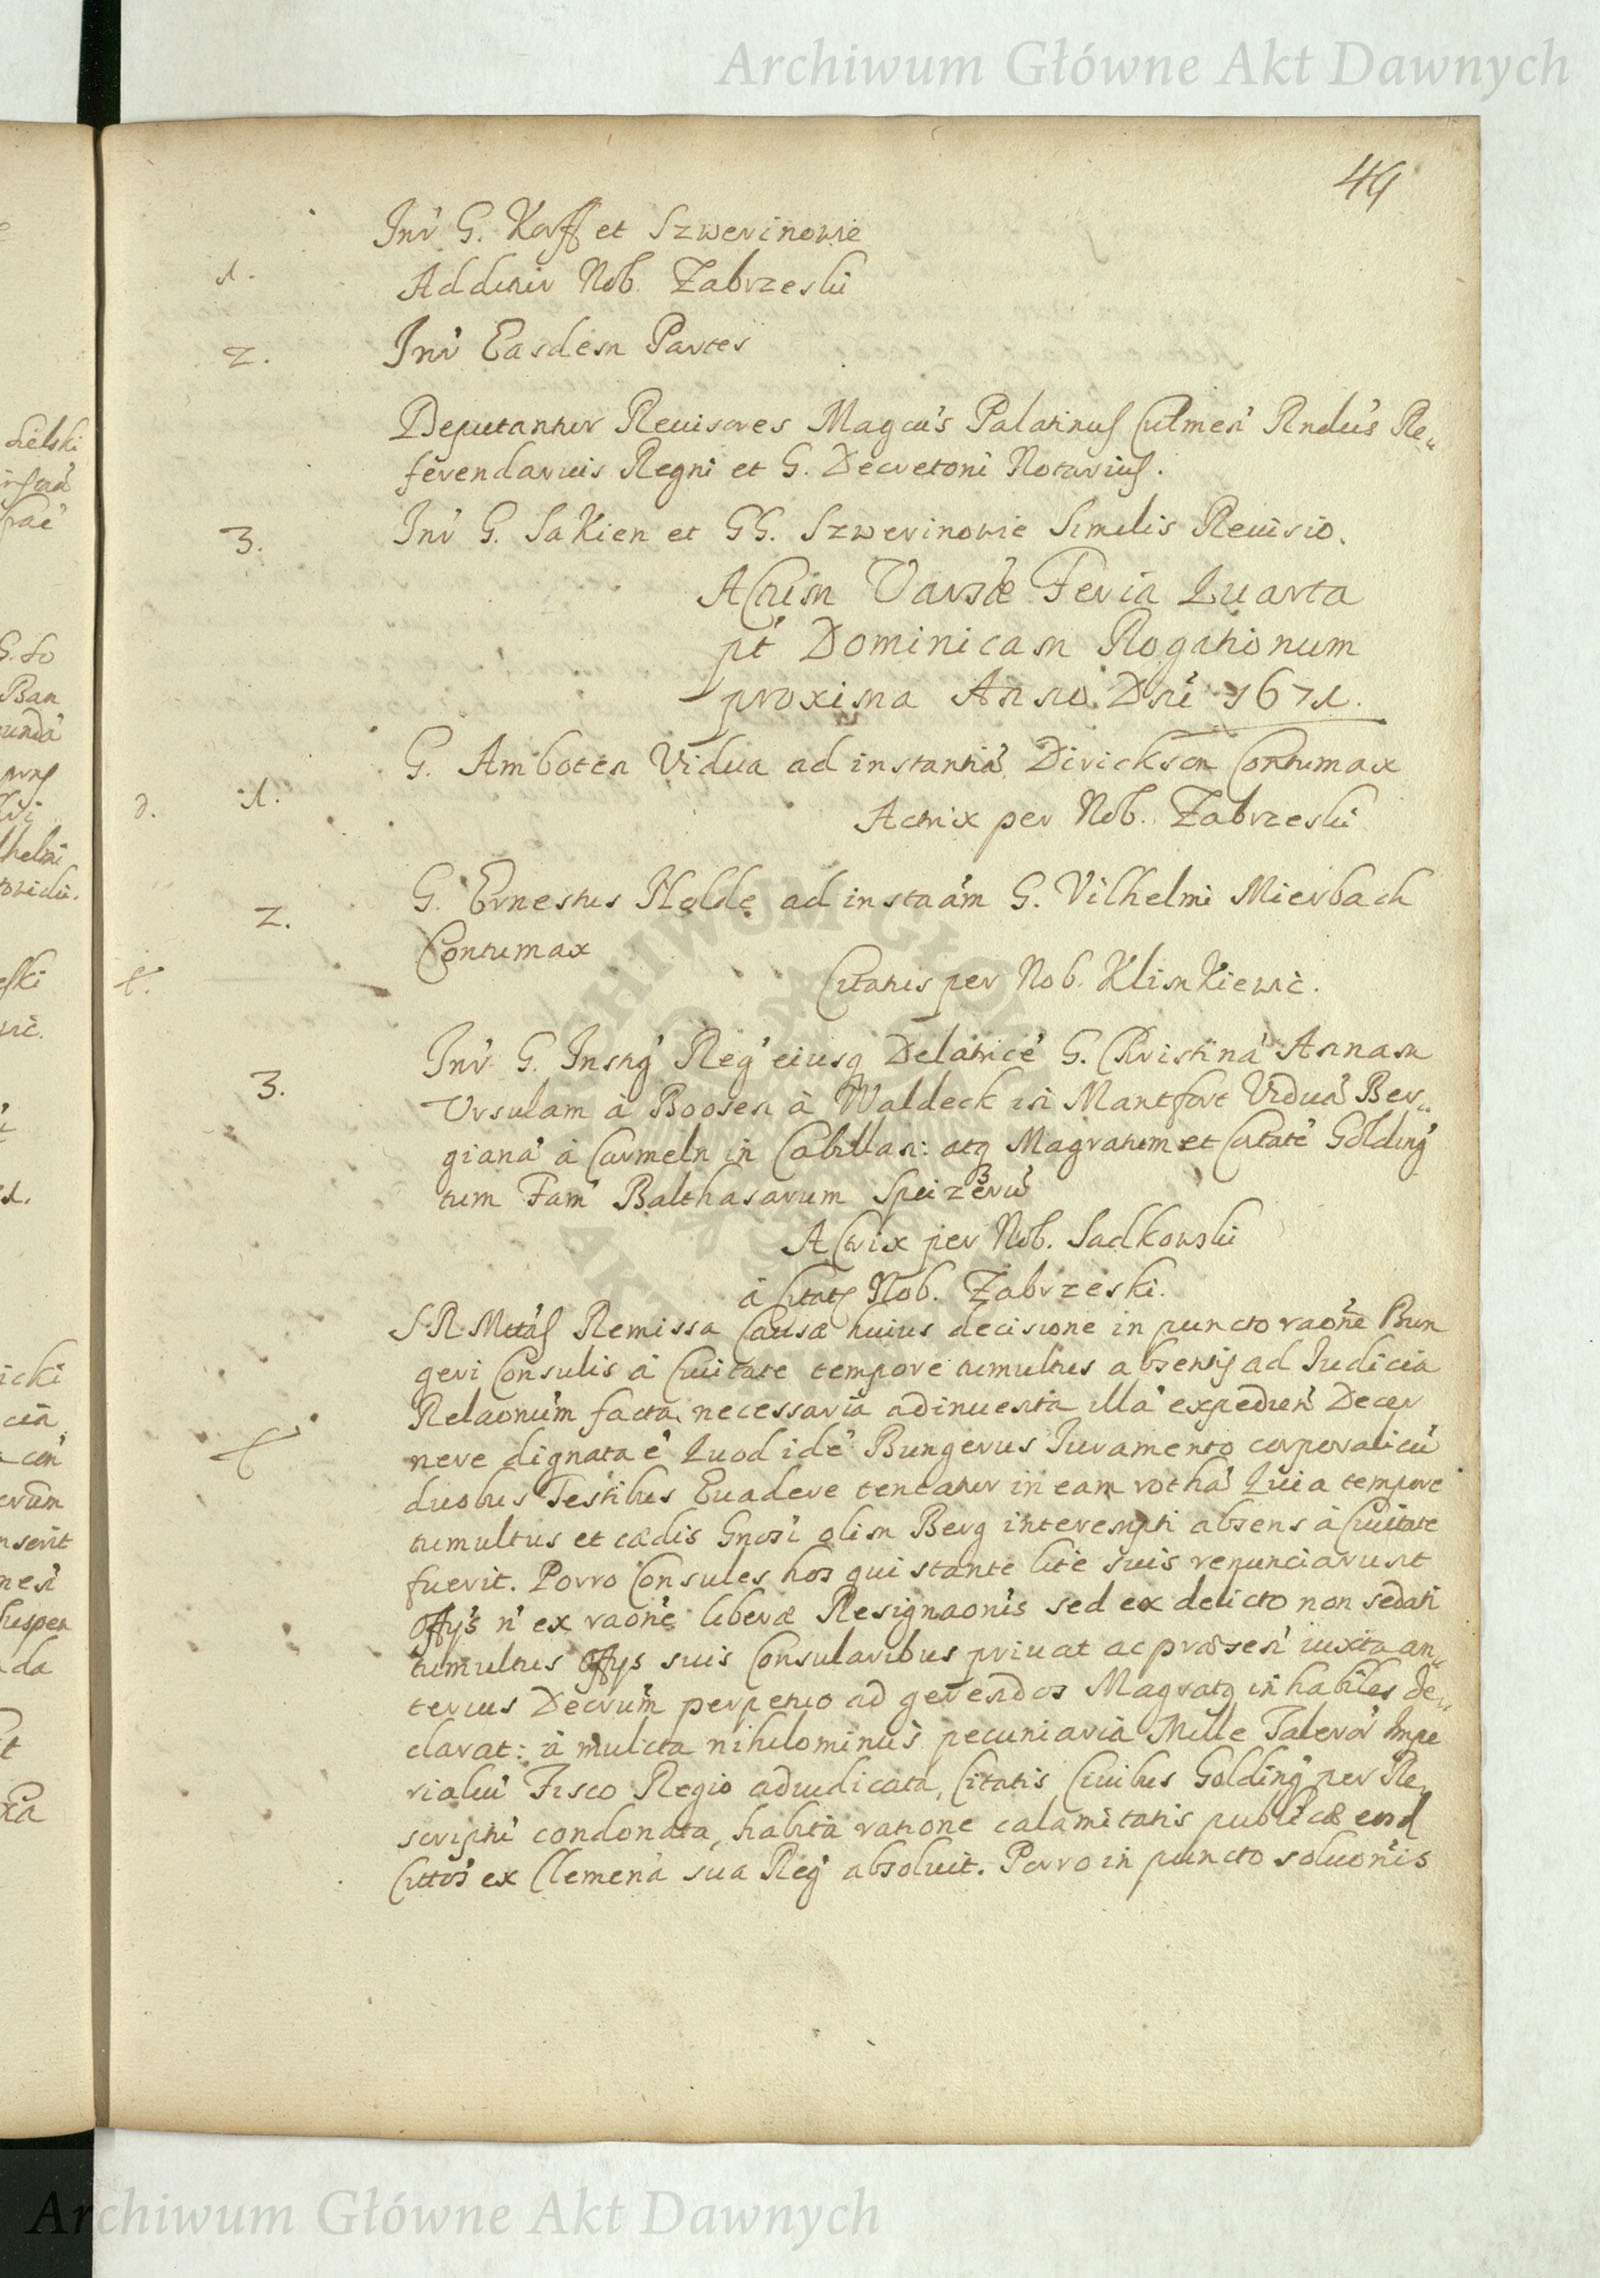 Archiwum Główne Akt Dawnych
49
Inr̃ G. Korff et Szwerinowie
1. Addunir Nob. Zabrzeski
2. Inr̃ Easdem Partes
Deputantur Reuisores Magcus Palatinus Culmen̄ Rndus Re„
ferendarius Regni et G. Decretoru Notarius.
3. Inr̃ G. SaKien et GG. Szwerinowie Similis Reuisio.
Actum Varsae Feria Quarta
pt Dominicam Rogationum
proxima Anno Dni 1671.
1. G. Amboten Vidua ad instantiā Dirickson Contumax
Actrix per Nob. Zabrzeski
2. G. Ernestus Holde ad instaām G. Vilhelmi Mierbach
Contumax
Citatus per Nob. KlimKiewic.
3. Inr̃ G. Instig Reg eiusq Delatricē G. Christinā Annam
Ursulam à Boosen à Waldeck in Montfort Viduā Ber„
gianā à Carmeln in Cabillan: atq Magratum et Ciutatē Golding
tum Fam Balthasarum Speizerū
Actrix per Nob. Sadkowski
à Citatis Nob. Zabrzeski.
S R Mttas Remissa Causae huius decisione in puncto raone Bun
geri Consulis à Ciuitate tempore tumultus absentis ad Iudicia
Relaonum facta, necessaria adinuenta illā expedien̄ Decer
nere dignata ē Quod idē Bungerus Iuramento corporali cū
duobus Testibus Euadere teneatur in eam rothā Quia tempore
tumultus et cædis Gnosi olim Berg interempti absens à Ciuitate
fuerit. Porro Consules hos qui stante lite suis renunciarunt
offys n̄ ex raone liberæ Resignaonis sed ex delicto non sedati
tumultus offys suis Consularibus priuat ac præsen̄ iuxta an„
terius Decrum perpetuo ad gerendos Magratq inhabiles de„
clarat: à mulcta nihilominus pecuniaria Mille Talerō Impe
rialiū Fisco Regio adiudicata, Citatis Ciuibus Golding per Re
scripti condonata, habita ratione calamitatis publicæ eosd
Cittos ex Clemenā sua Reg absoluit. Porro in puncto soluonis
Archiwum Główne Akt Dawnych